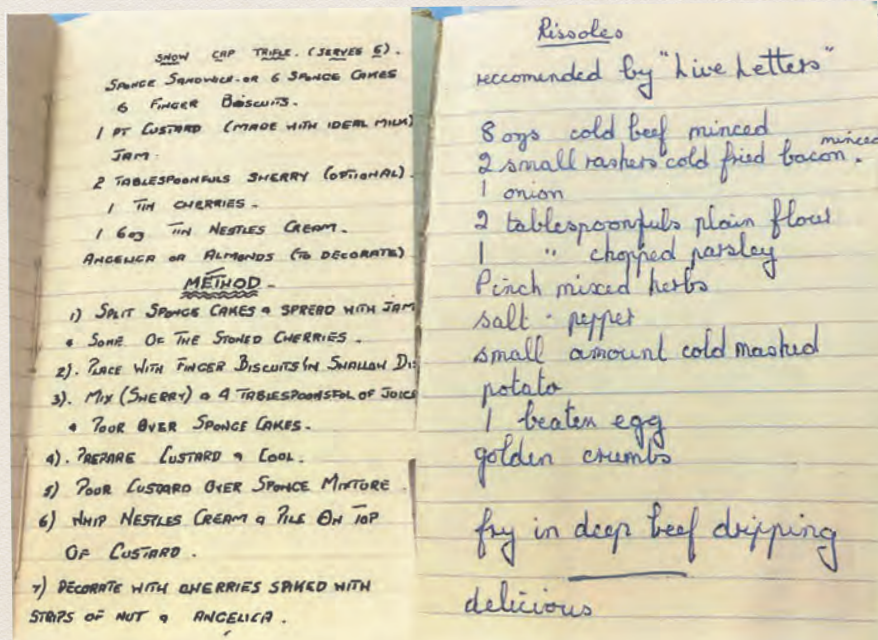 SNOW CAP TRIFLE. (SERVES 6).
SPONGE SANDWICH OR 6 SPONGE CAKES
6 FINGER BISCUITS.
1 PT CUSTARD (MADE WITH IDEAL MILK)
JAM.
2 TABLESPOONFULS SHERRY (OPTIONAL).
1 TIN CHERRIES.
1 6oz TIN NESTLES CREAM.
ANGELICA OR ALMONDS (TO DECORATE)
METHOD
1) SPLIT SPONGE CAKES & SPREAD WITH JAM
& SOME OF THE STONED CHERRIES.
2). PLACE WITH FINGER BISCUITS IN SHALLOW DI
3). MIX (SHERRY) & 4 TABLESPOONSFUL OF JUICE
& POOR OVER SPONGE CAKES.
4). PREPARE CUSTARD & COOL.
5) POOR CUSTARD OVER SPONGE MIXTURE.
6) WHIP NESTLES CREAM & PILE ON TOP
OF CUSTARD.
7) DECORATE WITH CHERRIES WITH
STRIPS OF NUT & ANGELICA.
Rissoles
reccomended by "Live Letters"
8 ozs cold beef minced
2 small rashers cold fried bacon minced.
1 onion
2 tablespoonfuls plain flour
1 " chopped parsley
Pinch mixed herbs
salt · pepper
small amount cold mashed
potato
1 beaten egg
golden crumbs
fry in deep beef dripping
delicious